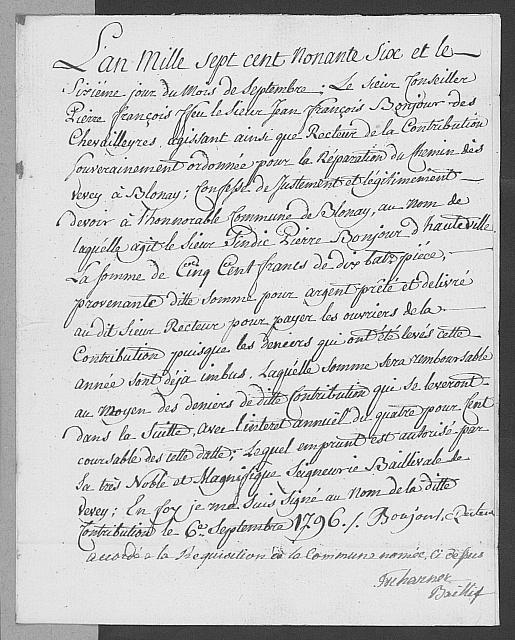 L'an Mille sept cent Nonante Six et le
Sixiéme jour du Mois de Septembre ; Le Sieur Conseiller
Pierre François ffeu le Sieur Jean François Bonjour des
Chevailleyres, agissant ainsi que Recteur de la Contribution
Souverainement ordonnée pour la Réparation du Chemin des
Vevey à Blonay ; Confesse de Justement et légitimement
devoir à l'honnorable Commune de Blonay, au nom de
laquélle agit le Sieur Sindic Pierre Bonjour d'hauteville
La somme de Cinq Cent francs de dix batz piéce,
provenante ditte somme pour argent prêté et délivré
au dit Sieur Recteur pour payer les ouvriers de la
Contribution puisque les deniers qui ont été levés cette
année sont déja imbus. Laquélle somme sera remboursable
au moyen des deniers de ditte Contribution qui se leveront
dans la Suitte, avec l'interet annuéll du quatre pour Cent
coursable des cette datte ; Lequel emprunt est autorisé par
Sa très Noble et Magnifique Seigneurie Baillivale de
Vevey ; En foy je me suis Signé au Nom de la ditte
Contribution le 6e Septembre 1796 ./. Bonjour, Recteur
accordé à la Requisition de la Commune nomée, ci dessus
Tscharner
Baillif